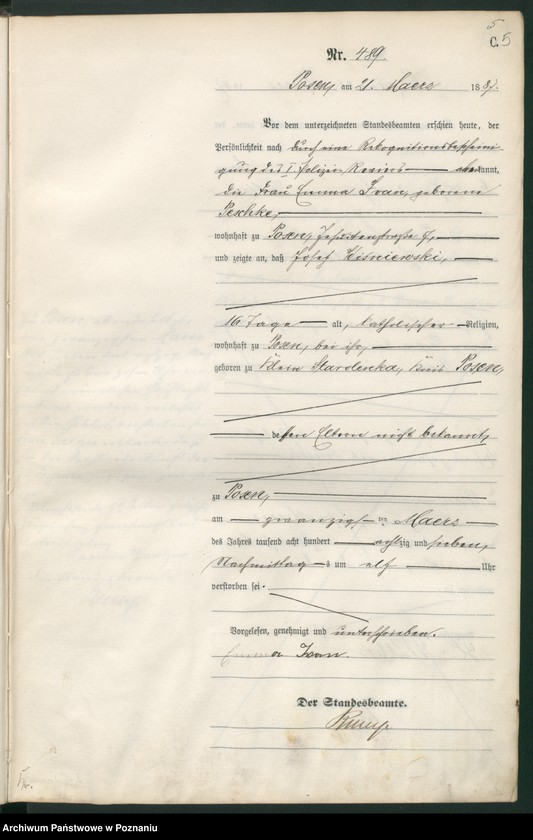 5
C. 5
Nr. 489.
Posen, am 21. Maerz 1887.
Vor dem unterzeichneten Standesbeamten erschien heute, der
Persönlichkeit nach durch eine Rekognitionsbescheini-
gung des I. Polizei Reviers kannt,
die Frau Emma Ivan, geborene
Peschke,
wohnhaft zu Posen, Jesuitenstraße
und zeigte an, daß Josef Wisniewski,
16 Tage alt, katholischer Religion,
wohnhaft zu Posen, bei ihr,
geboren zu Klein Starolenka, Kreis Posen,
dessen Eltern nicht bekannt,
zu Posen,
am zwanzigsten Maerz
des Jahres tausend acht hundert achtzig und sieben,
Nachmittags um elf Uhr
verstorben sei.
Vorgelesen, genehmigt und unterschrieben.
Emma Ivan.
Der Standesbeamte.
Archiwum Państwowe w Poznaniu